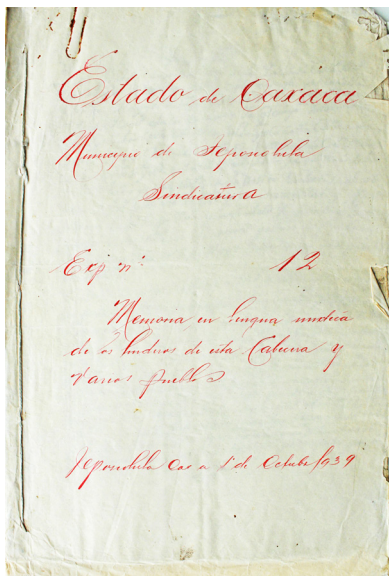 Estado de Oaxaca
Municipio de Teposcolula
Sindicatura
Exp. nº 12
Memoria en lengua mixteca
de los linderos de esta Cabecera y
varios pueblos
Teposcolula Oax a 1º de Octubre 1939